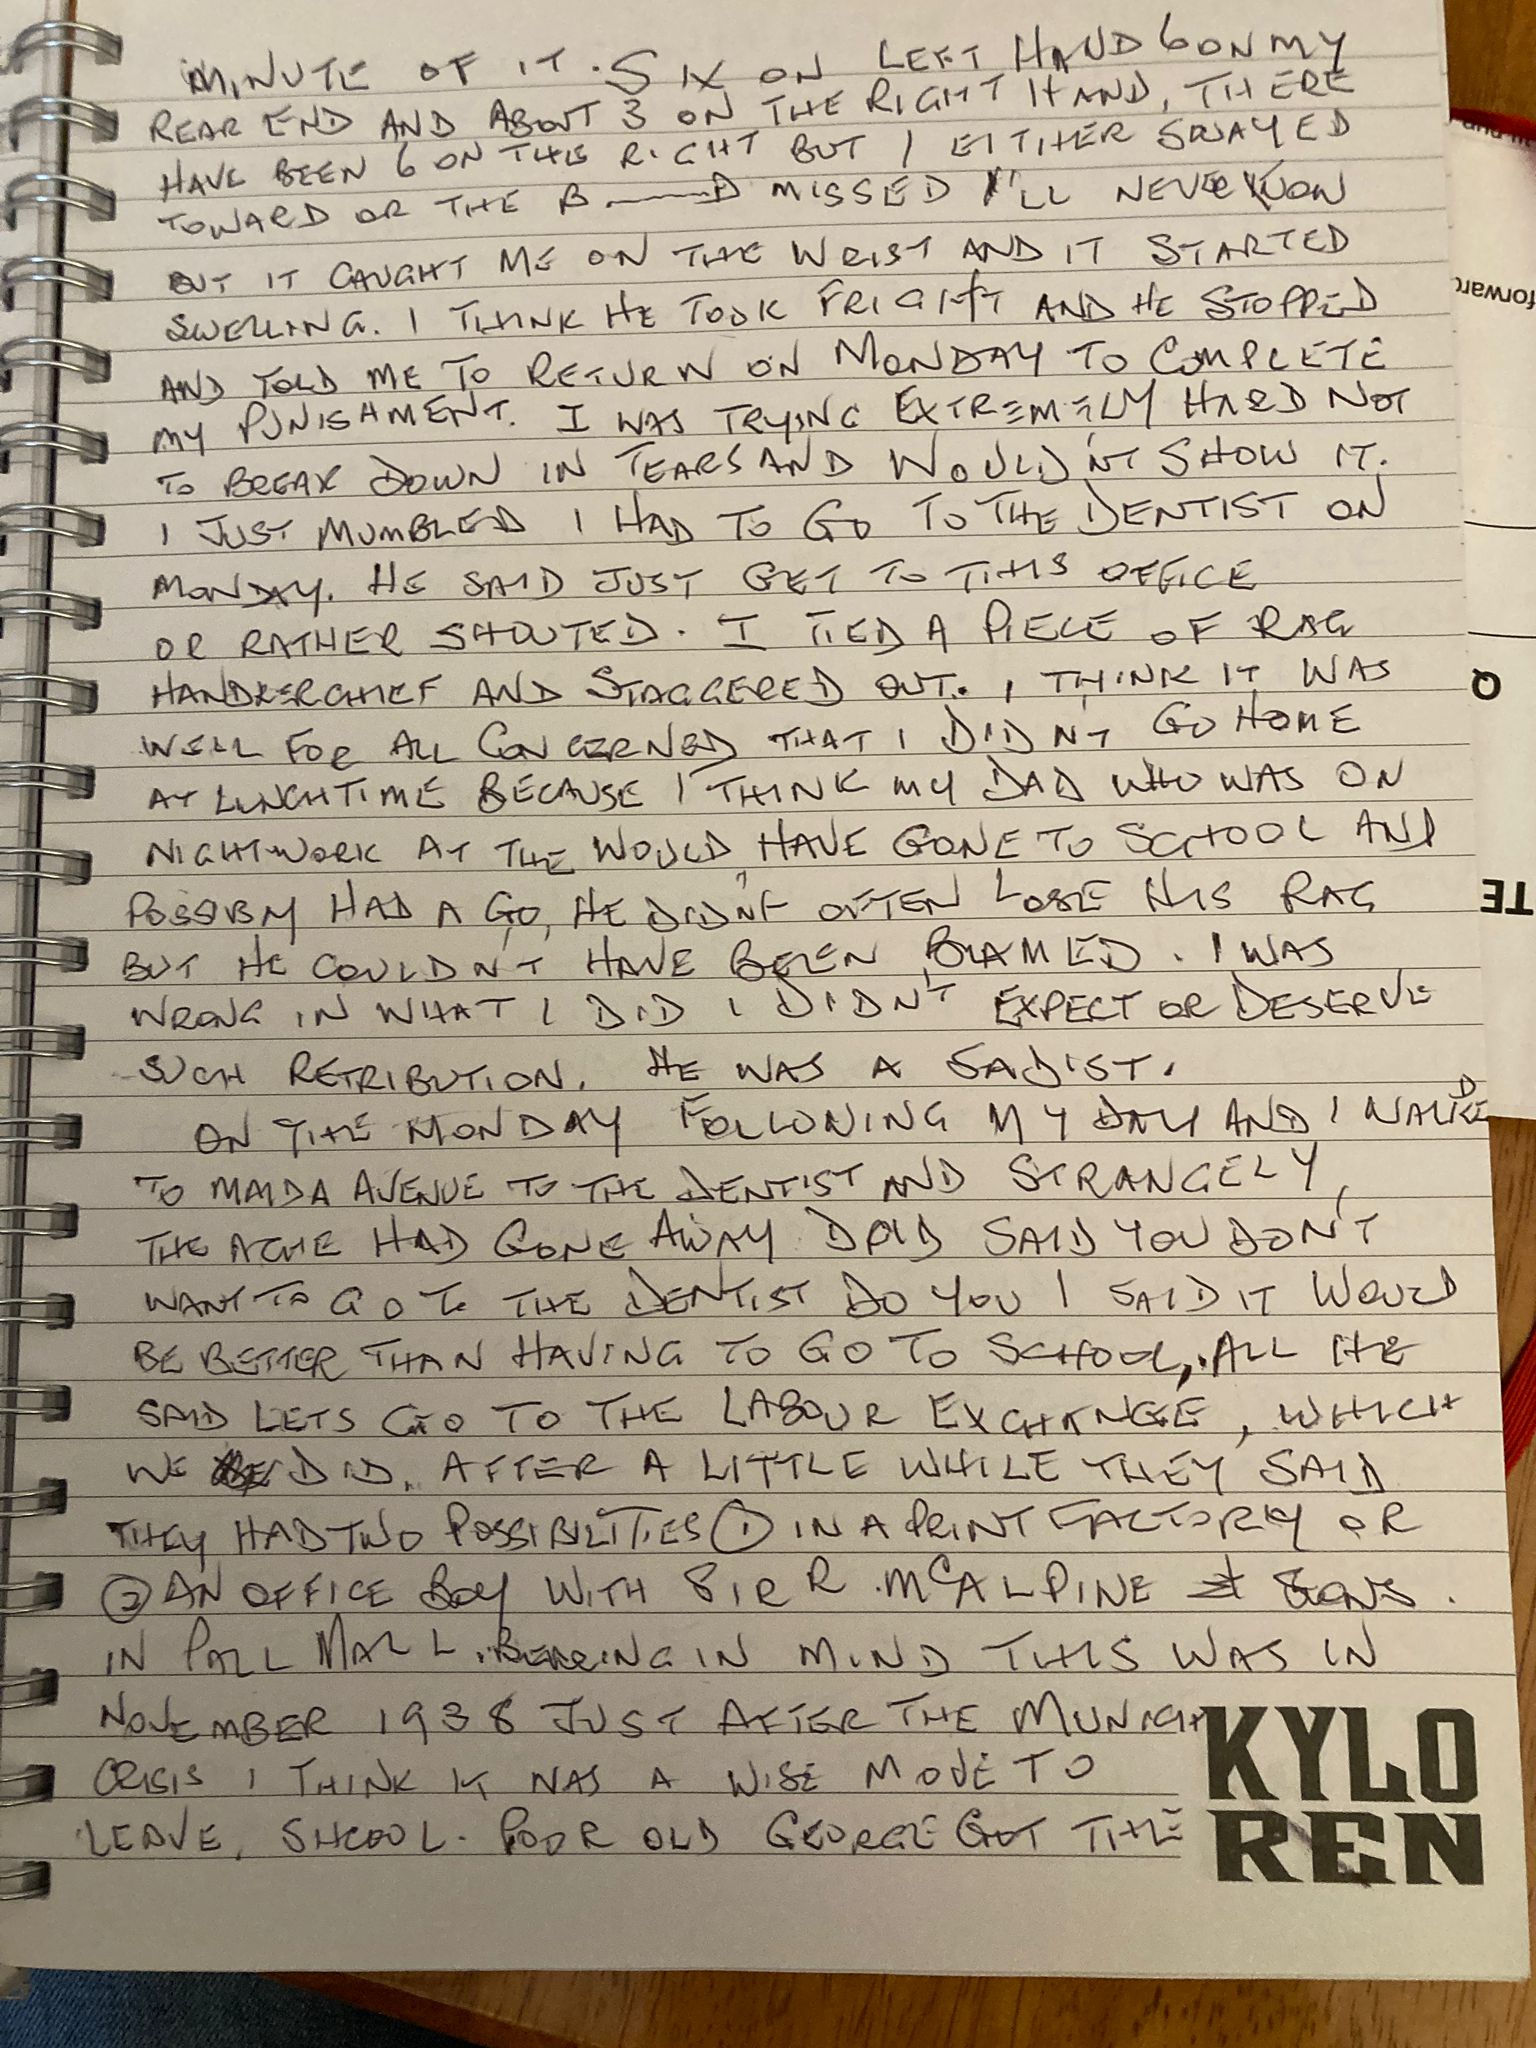 MINUTE OF IT. SIX ON LEFT HAND 6 ON MY
REAR END AND ABOUT 3 ON THE RIGHT HAND, THERE
HAVE BEEN 6 ON THE RIGHT BUT I EITHER SWAYED
TOWARD OR THE B——D MISSED I'LL NEVER KNOW
BUT IT CAUGHT ME ON THE WRIST AND IT STARTED
SWELLING. I THINK HE TOOK FRIGHT AND HE STOPPED
AND TOLD ME TO RETURN ON MONDAY TO COMPLETE
MY PUNISHMENT. I WAS TRYING EXTREMELY HARD NOT
TO BREAK DOWN IN TEARS AND WOULDN'T SHOW IT.
I JUST MUMBLED I HAD TO GO TO THE DENTIST ON
MONDAY. HE SAID JUST GET TO THIS OFFICE
OR RATHER SHOUTED. I TIED A PIECE OF RAG
HANDKERCHIEF AND STAGGERED OUT. I THINK IT WAS
WELL FOR ALL CONCERNED THAT I DIDN'T GO HOME
AT LUNCHTIME BECAUSE I THINK MY DAD WHO WAS ON
NIGHTWORK AT THE WOULD HAVE GONE TO SCHOOL AND
POSSIBLY HAD A GO, HE DIDN'T OFTEN LOSE HIS RAG
BUT HE COULDN'T HAVE BEEN BLAMED. I WAS
WRONG IN WHAT I DID I DIDN'T EXPECT OR DESERVE
SUCH RETRIBUTION. HE WAS A SADIST.
ON THE MONDAY FOLLOWING MY DAY AND I WALKED
TO MAIDA AVENUE TO THE DENTIST AND STRANGELY,
THE ACHE HAD GONE AWAY DAD SAID YOU DON'T
WANT TO GO TO THE DENTIST DO YOU I SAID IT WOULD
BE BETTER THAN HAVING TO GO TO SCHOOL, ALL HE
SAID LETS GO TO THE LABOUR EXCHANGE, WHICH
WE DID. AFTER A LITTLE WHILE THEY SAID
THEY HAD TWO POSSIBILITIES ① IN A PRINT FACTORY OR
② AN OFFICE BOY WITH SIR R. MCALPINE & SONS.
IN PALL MALL. BEARING IN MIND THIS WAS IN
NOVEMBER 1938 JUST AFTER THE MUNICH
CRISIS I THINK IT WAS A WISE MOVE TO
LEAVE, SHCOOL. POOR OLD GEORGE GOT THE
KYLO
REN
forward
Q
TE